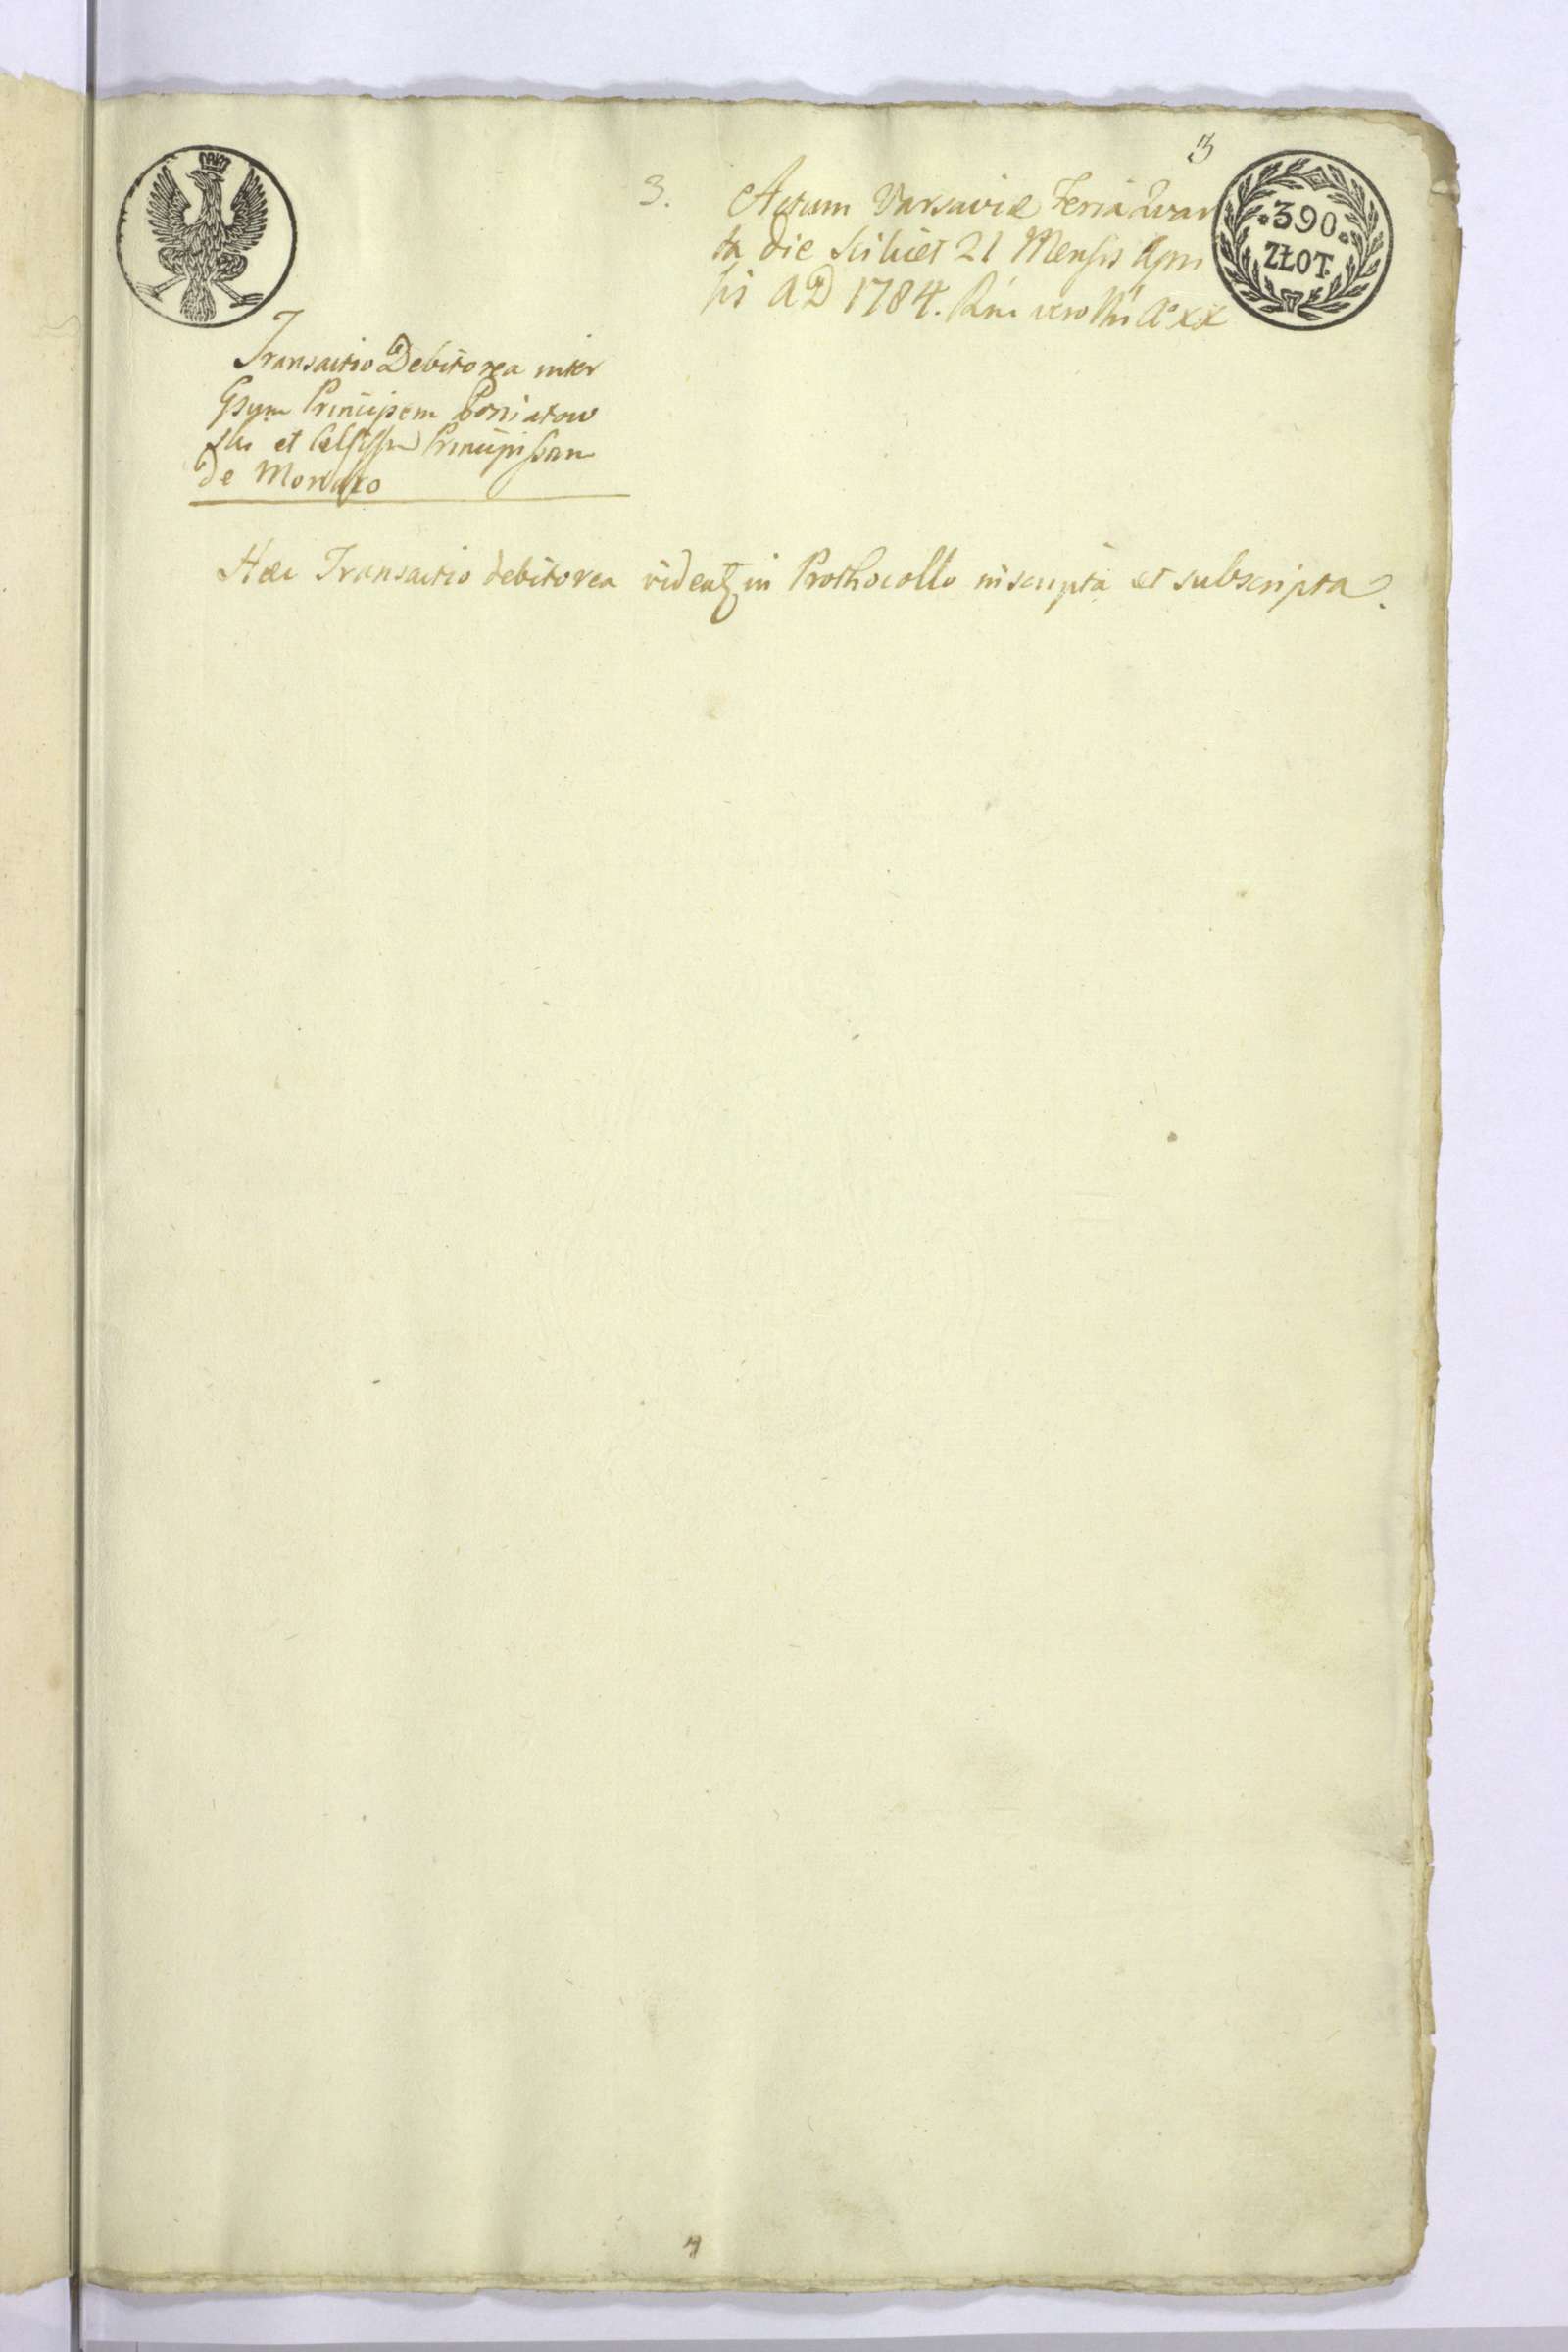 3
3. Actum Varsaviæ Feria Quar
ta die scilicet 21 Mensis Apri
lis AD 1784. Rni vero Nri Aº XX
·390·
ZŁOT.
Transactio Debitorea inter
Principem Poniatow
ski et Celsissm Principissam
de Monako
Hæc Transactio debitorea videatur in Prothocollo inscripta et subscripta.